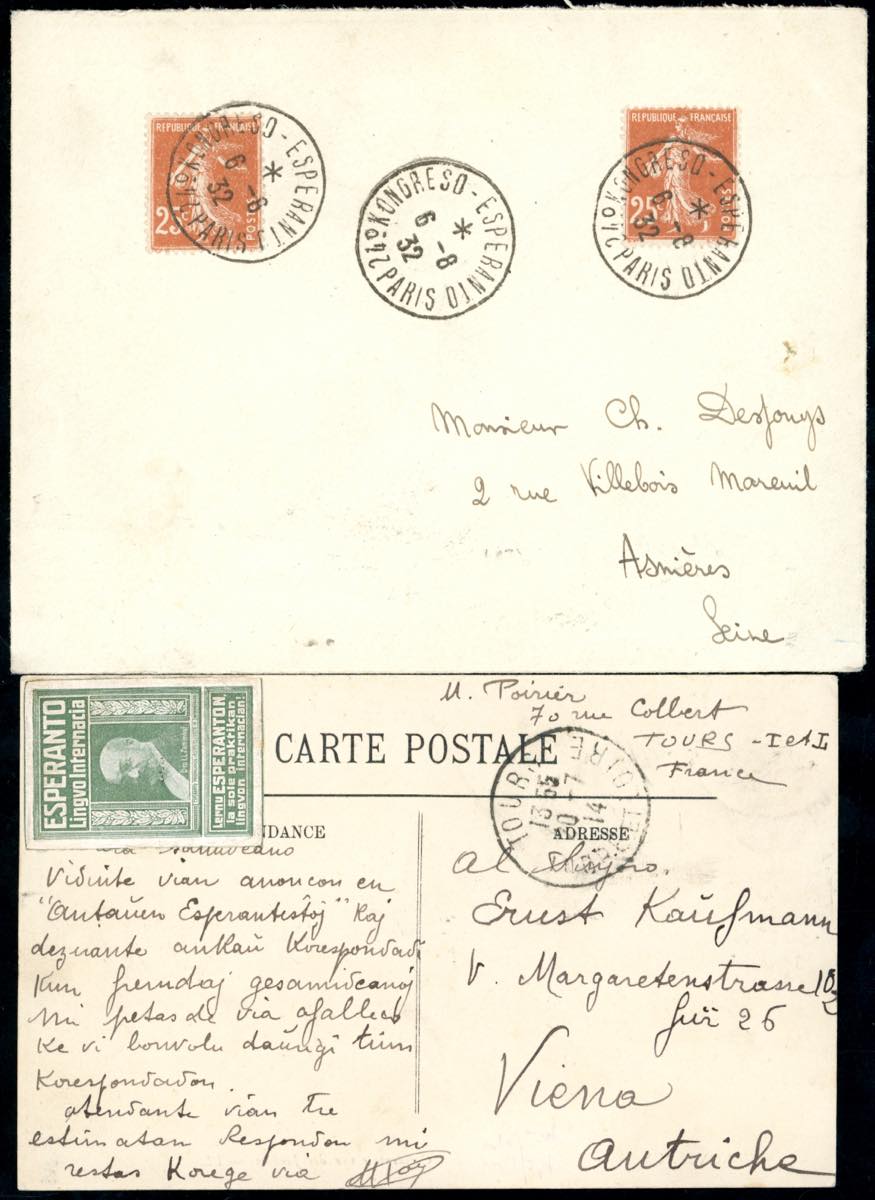 REPUBLIQUE FRANÇAISE
25
POSTES
24º KONGRESO - ESPERANTO PARIS
6 -8
32
24º KONGRESO - ESPERANTO PARIS
6 -8
32
REPUBLIQUE FRANÇAISE
25
POSTES
24º KONGRESO - ESPERANTO PARIS
6 -8
32
Monsieur Ch. Desjouys
2 rue Villebois Mareuil
Asnières
Seine
ESPERANTO
Lingvo Internacia
Lernu ESPERANTON
la sole praktikan
lingvon internacian!
M. Poirier
70 rue Colbert
TOURS - I et L
France
CARTE POSTALE
TOURS
13 55
10 -7
14
LOIRE
NDANCE
ADRESSE
Samideano
Vidinte vian anoncon en
"Antaŭen Esperantistoj" Kaj
dezirante ankaŭ Korespondadi
Kun fremdaj gesamideanoj
mi petas de via
Ke vi bonvolu daŭrigi
Korespondadon.
atendante vian tre
estimatan Respondon mi
restas Korege via
Al
Ernst Kaufmann
V. Margaretenstrasse
Tür 26
Viena
Autriche